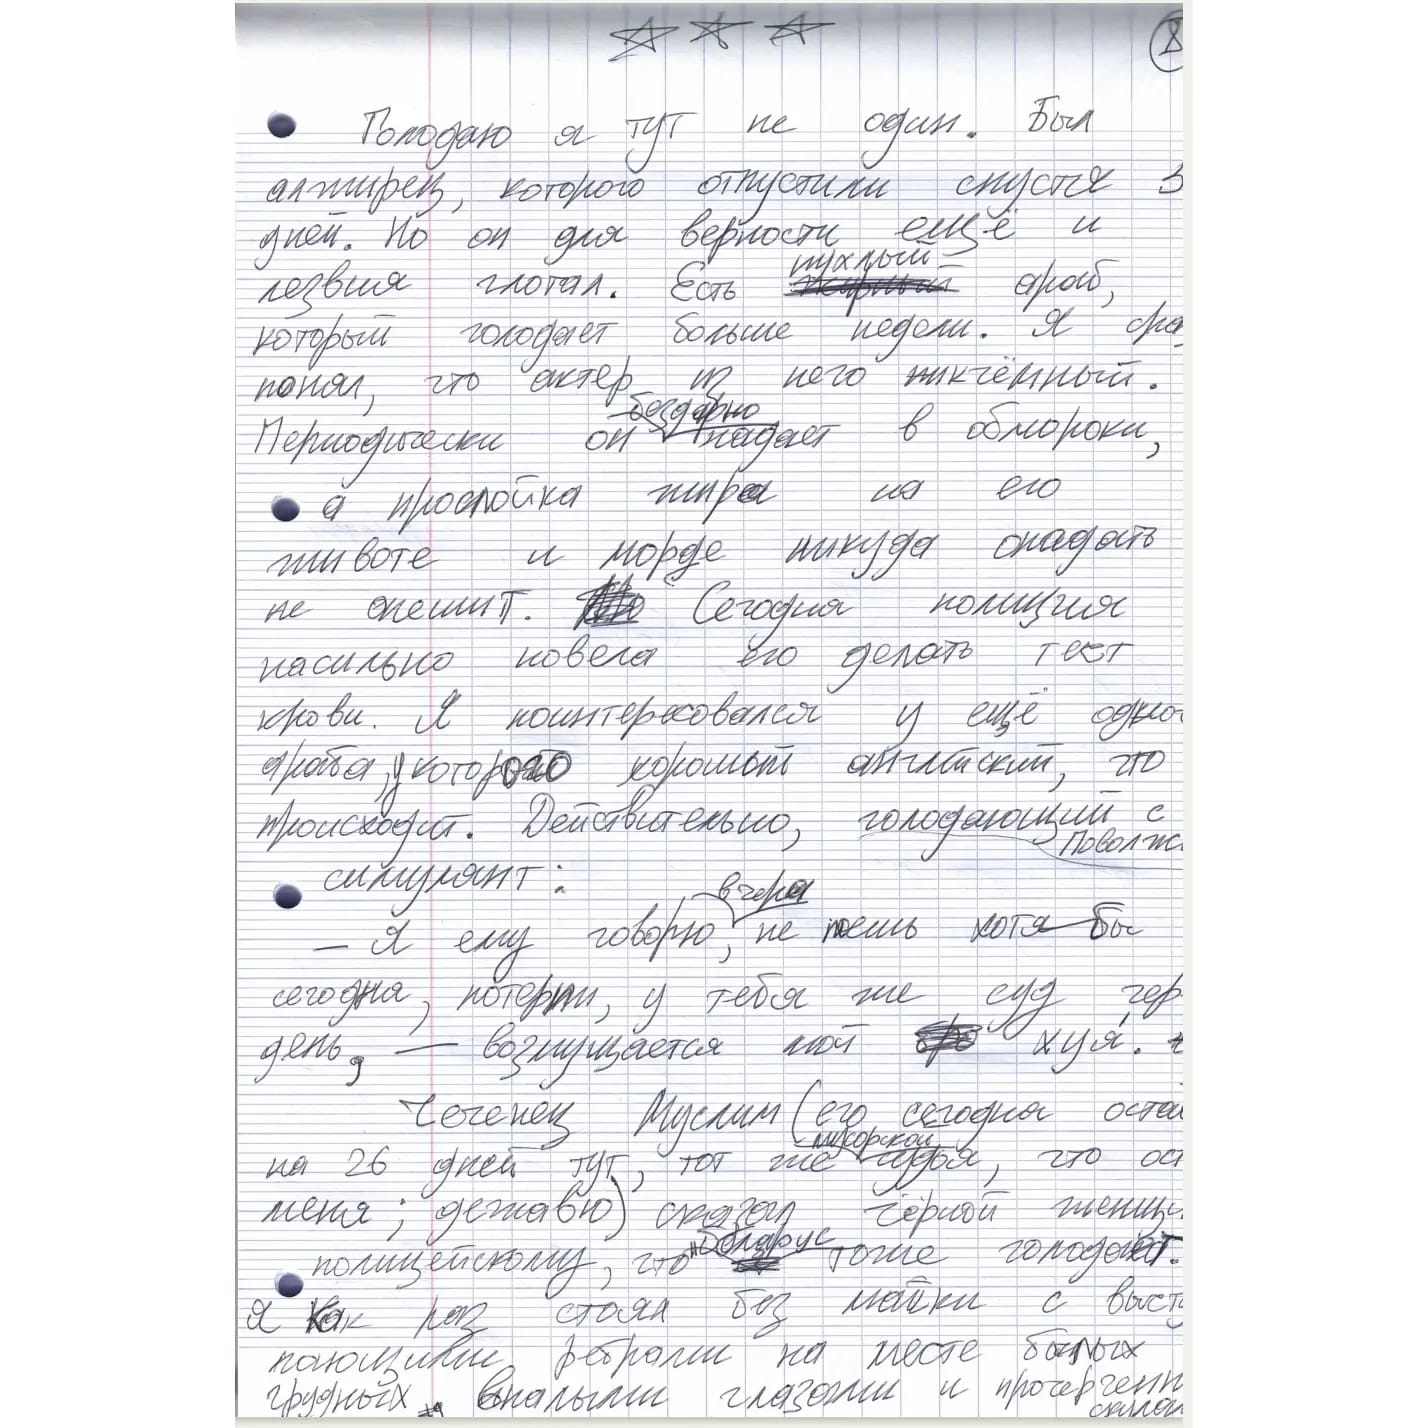 Голодаю я тут не один. Был
алжирец, которого отпустили спустя 3
дней. Но он для верности ещё и
пухлый
лезвия глотал. Есть араб,
который голодает больше недели. Я сра
понял, что актер из него никчёмный.
бездарно
Периодически он падает в обмороки,
а прослойка жира на его
животе и морде никуда опадать
не спешит. Сегодня полиция
насильно повела его делать тест
крови. Я поинтересовался у ещё одно
араба, у которого хороший английский, что
происходит. Действительно, голодающий с
Поволжс
симулянт:
вчера
— Я ему говорю, не поешь хотя бы
сегодня, потерпи, у тебя же суд чер
день, — возмущается мой хуя.
Чеченец Муслим (его сегодня остав
мусорской
на 26 дней тут, тот же судья, что ос
меня; дежавю) сказал чёрной женщи
беларус
полицейскому, что тоже голодает.
Я как раз стоял без майки с высту
пающими рёбрами на месте былых
грудных, впалыми глазами и прочерченн
скулам